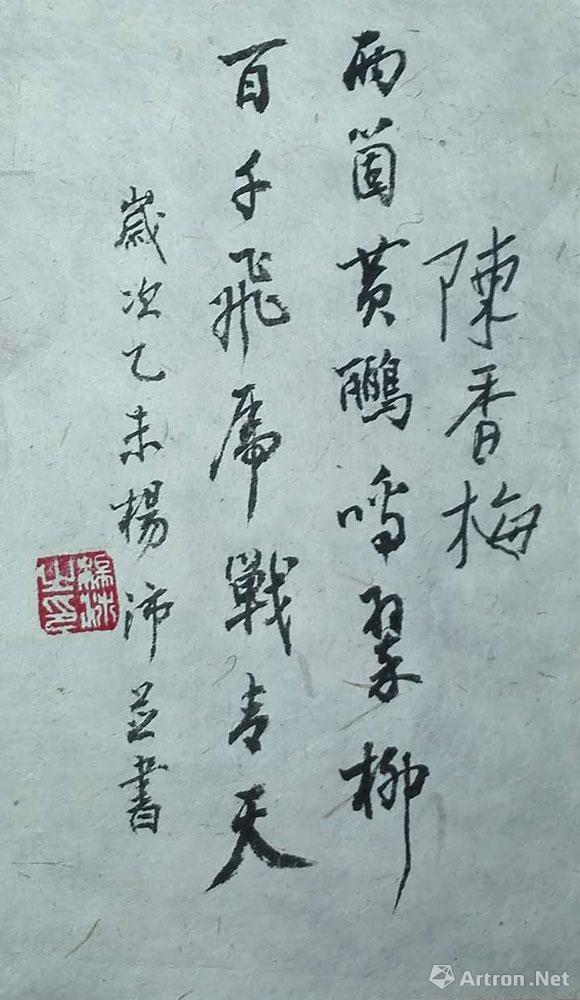 陳香梅
兩箇黃鸝鳴翠柳
百千飛虎戰青天
歲次乙未楊沛並書
Artron.Net